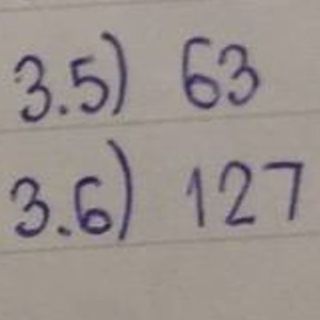 3.5) 63
3.6) 127